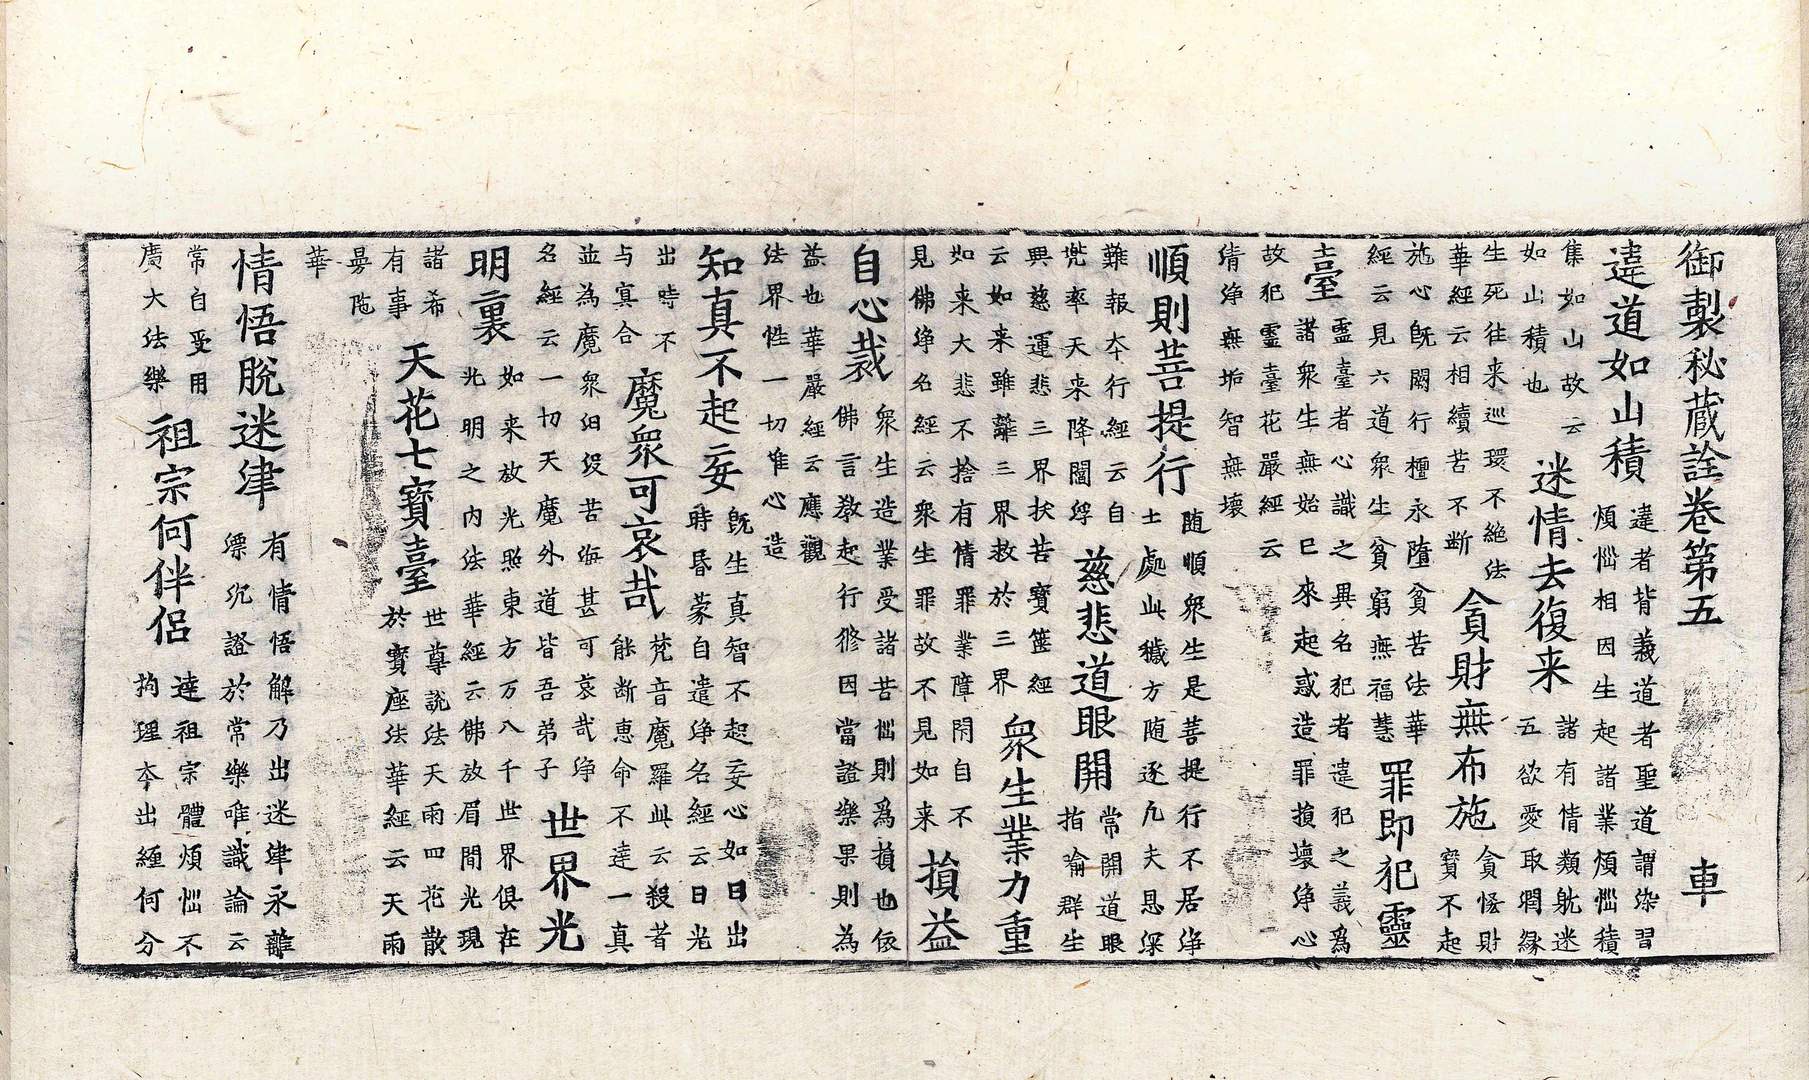 御製秘蔵詮卷第五 車
違道如山積
違者背義道者聖道謂染習
煩惱相因生起諸業煩惱積
集如山故云
如山積也
迷情去復来
諸有情類躭迷
五欲愛取潤縁
生死往来巡環不絶法
華經云相續苦不断
貪財無布施
貪恡財
寳不起
施心既闕行檀永墮貧苦法華
經云見六道衆生貧窮無福慧
罪即犯靈
臺
靈臺者心識之異名犯者違犯之義爲
諸衆生無始已來起惑造罪損壞浄心
故犯靈臺花嚴經云
清浄無垢智無壞
順則菩提行
随順衆生是菩提行不居浄
土處此穢方随逐凡夫恩深
難報夲行經云自
兜率天来降閻浮
慈悲道眼開
常開道眼
指喻群生
興慈運悲三界抶苦寳篋經
云如来雖離三界救於三界
衆生業力重
如来大悲不捨有情罪業障閇自不
見佛浄名經云衆生罪故不見如来
損益
自心裁
衆生造業受諸苦惱則爲損也依
佛言教起行修因當證樂果則為
益也華嚴經云應觀
法界性一切惟心造
知真不起妄
既生真智不起妄心如日出
時昏蒙自遣浄名經云日光
出時不
与㝠合
魔衆可哀哉
梵音魔羅此云殺者
能断惠命不達一真
並為魔衆汨没苦海甚可哀哉浄
名經云一切天魔外道皆吾弟子
世界光
明裏
如来放光照東方万八千世界俱在
光明之内法華經云佛放眉間光現
諸希
有事
天花七寳臺
世尊説法天雨四花散
於寳座法華經云天雨
曼陁
華
情悟脫迷津
有情悟解乃出迷津永離
漂沉證於常樂唯識論云
常自受用
廣大法樂
祖宗何伴侶
達祖宗體煩惱不
拘理夲出纏何分